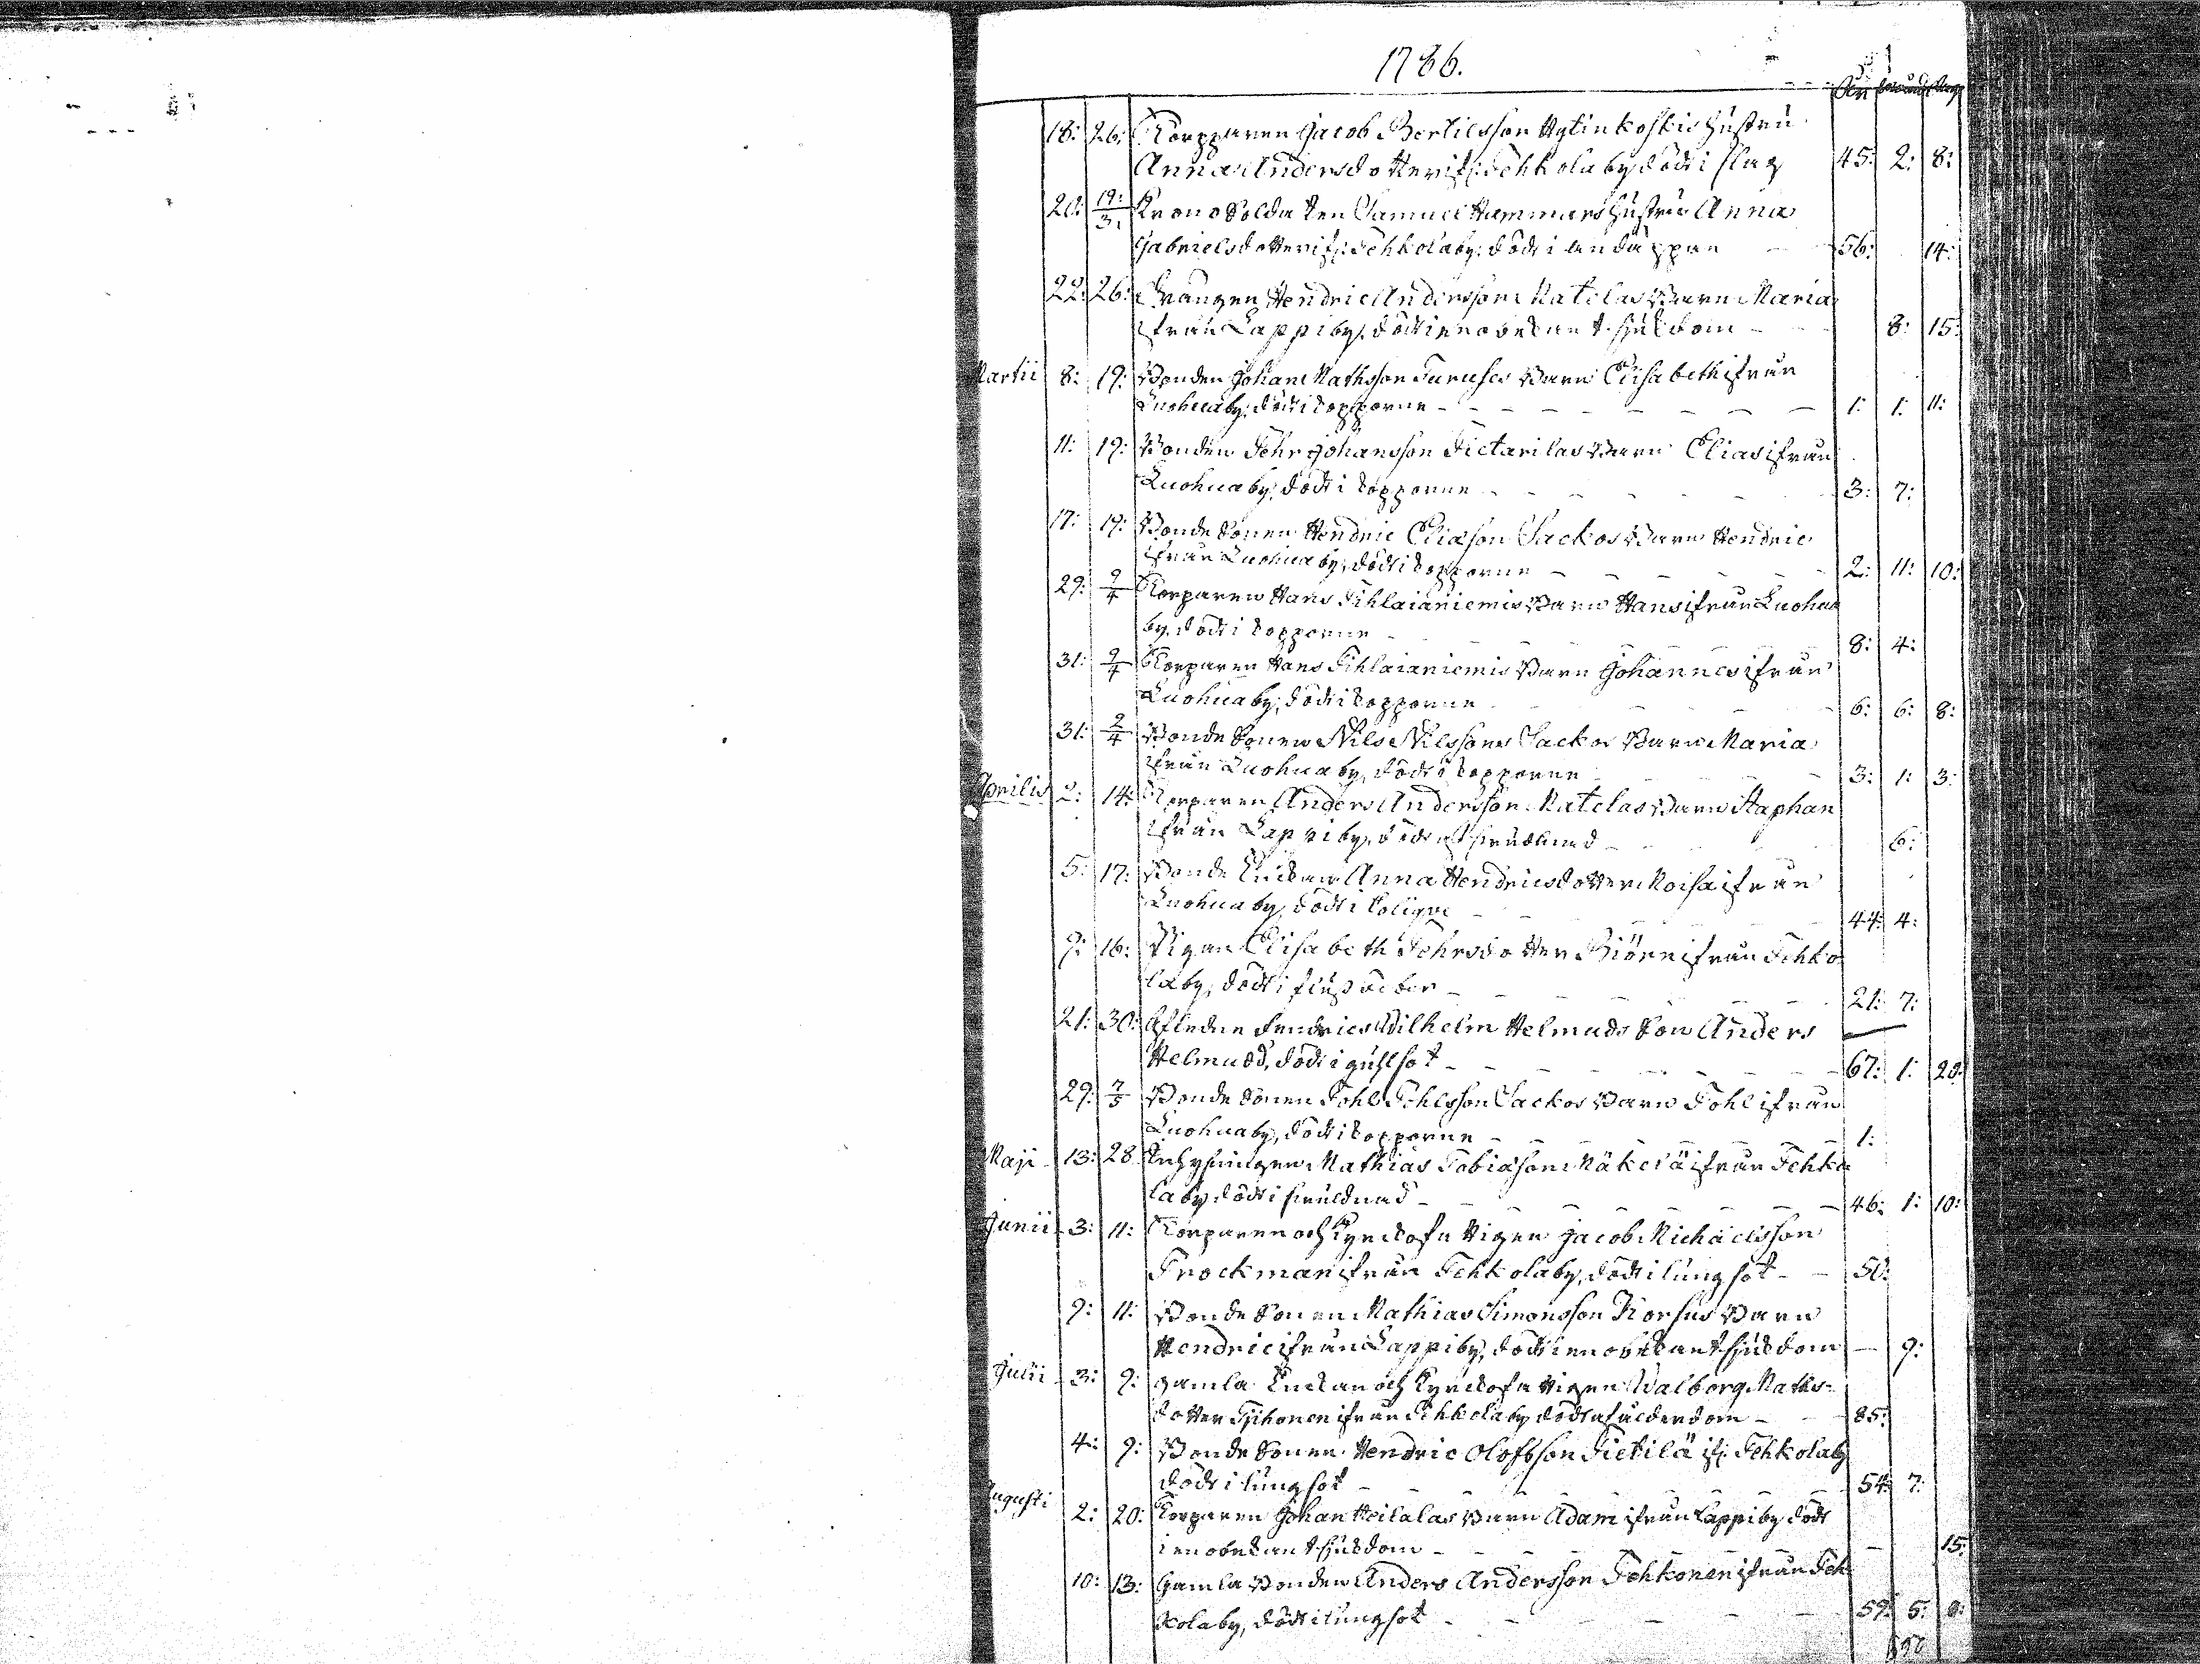 1786.
åhr månad dag
18: 26: Torpparen Jacob Bertilsson Hytinkoskis hustru
Anna Andersdotter if: Tehkola by, död i slag 45: 2: 8:
20: 19/3: Krono Soldaten Samuel Hammars hustru Anna
Gabrielsdotter if: Tehkola by: död i andtäppan 56: 14:
22: 26: Hendric Andersson Matelas Barn Maria
ifrån Lappi by, död i en obekant sjukdom 8: 15:
Martii 8: 19: Bonden Johan Mathsson Turuses Barn Elisabeth ifrån
Luohua by: död i kopporne 1: 1: 11:
11: 19: Bonden Pehr Johansson Pietarilas Barn Elias ifrån
Luohua by: död i kopporne 3: 7:
17: 19: Bonde Sonen Hendric Eliasson Sackos Barn Hendric
ifrån Luohua by, död i kopporne 2: 11: 10:
29: 9/4 Torparen Hans Pihlaianiemis Barn Hans ifrån Luohua
by, död i kopporne 8: 4:
31: 9/4 Torparen Hans Pihlaianiemis Barn Johannes ifrån
Luohua by, död i kopporne 6: 6: 8:
31: 2/4 Bonde Sonen Nils Nilssons Sackos Barn Maria
ifrån Luohua by, död i kopporne 3: 1: 3:
Aprilis 2: 14: Torparen Anders Andersson Matelas Barn Staphan
ifrån Lappi by, död af 6:
5: 17: Bonde Enckan Anna Hendricsdotter Moisa ifrån
Luohua by, död i colique 44: 4:
9: 16: Pigan Elisabeth Pehrsdotter Biörn ifrån Tehko
la by, död i 21: 7:
21: 30: Afledne Fendrics Wilhelm Helmuds Son Anders
Helmudd, död i gulsot 67: 1: 20:
29: 7/5 Bonde Sonen Pohl Pohlsson Sackos Barn Pohl ifrån
Luohua by, död i kopporne 1:
Maji 13: 28 Inhysingen Mathias Tobiasson Mäkelä ifrån Tehko
la by, död i 46: 1: 10:
Junii 3: 11: Torparen och Kyrckofattigen Jacob Michaelsson
Trockman ifrån Tehkola by, död i lungsot 50:
9: 11: Bonde Sonen Mathias Simonsson Korsus Barn
Hendric ifrån Lappi by, död i en obekant sjukdom 9:
Julii 3: 9: gamla Enckan och Kyrckofattigen Walborg Maths-
dotter Tyihonen ifrån Tehkola by död af ålderdom 85:
4: 9: Bonde Sonen Hendric Olofsson Pietilä if: Tehkola by
död i lungsot 54: 7:
Augusti 2: 20: Torparen Johan Heilalas Barn Adam ifrån Lappi by död
i en obekant sjukdom 15:
10: 13: Gamla Bonden Anders Andersson Tehkonen ifrån Teh
kola by, död i lungsot 59: 5: 8: